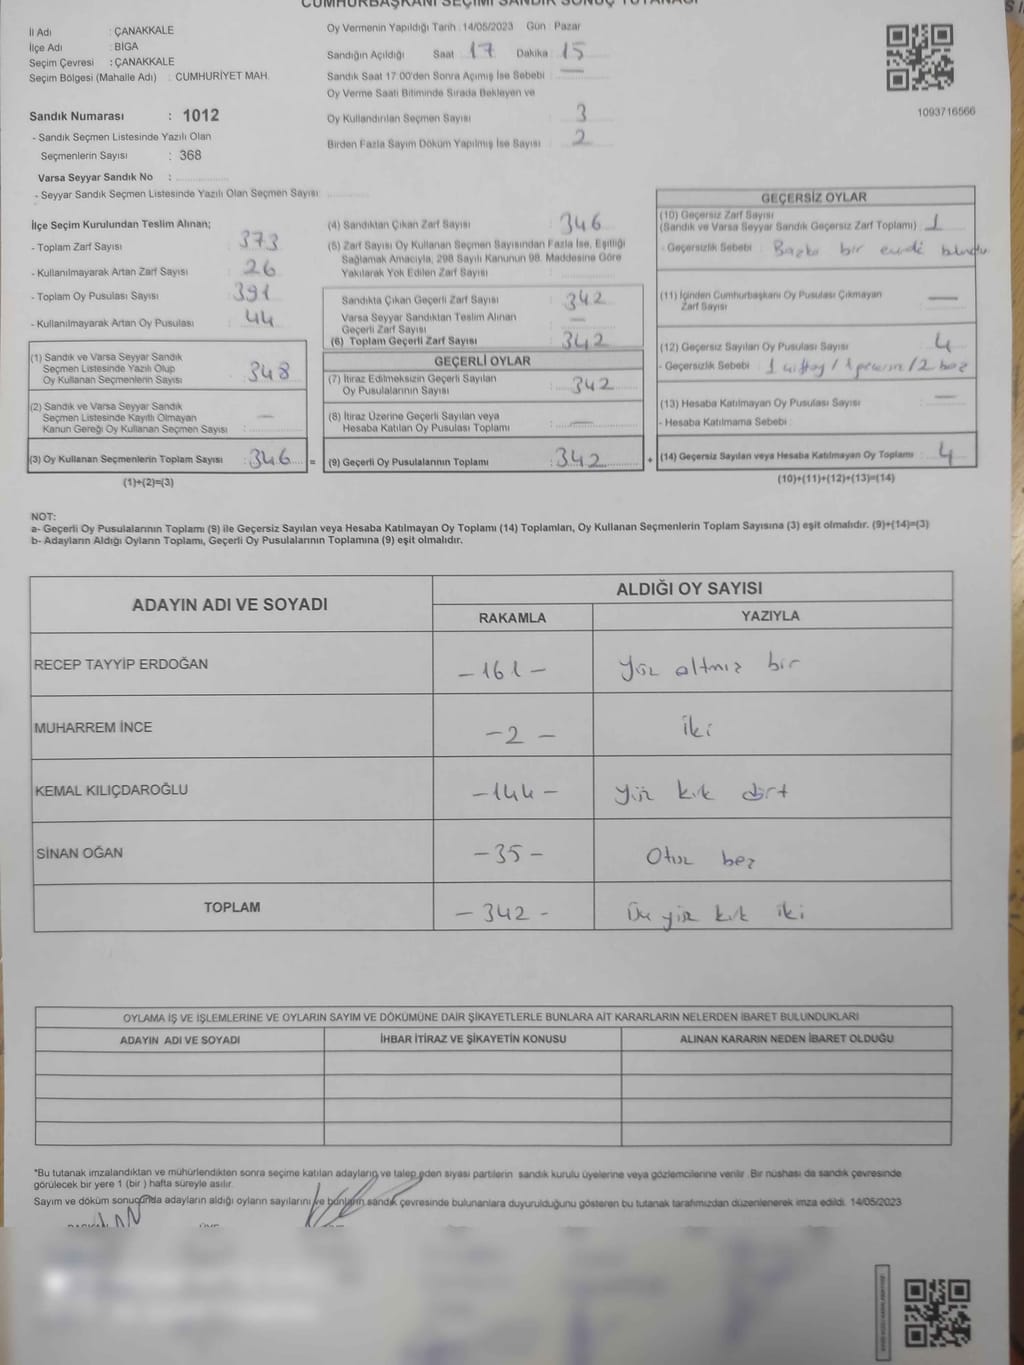 CUMHURBAŞKANI SEÇİMİ SANDIK SONUÇ TUTANAĞI
İl Adı : ÇANAKKALE
İlçe Adı : BİGA
Seçim Çevresi : ÇANAKKALE
Seçim Bölgesi (Mahalle Adı) : CUMHURİYET MAH.
Sandık Numarası : 1012
- Sandık Seçmen Listesinde Yazılı Olan
Seçmenlerin Sayısı : 368
Varsa Seyyar Sandık No :
- Seyyar Sandık Seçmen Listesinde Yazılı Olan Seçmen Sayısı:
Oy Vermenin Yapıldığı Tarih :14/05/2023 Gün : Pazar
Sandığın Açıldığı Saat 17 Dakika 15
Sandık Saat 17:00'den Sonra Açımış İse Sebebi : —
Oy Verme Saati Bitiminde Sırada Bekleyen ve
Oy Kullandırılan Seçmen Sayısı : 3
Birden Fazla Sayım Döküm Yapılmış İse Sayısı : 2
1093716566
İlçe Seçim Kurulundan Teslim Alınan;
- Toplam Zarf Sayısı : 373
- Kullanılmayarak Artan Zarf Sayısı : 26
- Toplam Oy Pusulası Sayısı : 391
- Kullanılmayarak Artan Oy Pusulası : 44
(1) Sandık ve Varsa Seyyar Sandık
Seçmen Listesinde Yazılı Olup
Oy Kullanan Seçmenlerin Sayısı : 348
(2) Sandık ve Varsa Seyyar Sandık
Seçmen Listesinde Kayıtlı Olmayan
Kanun Gereği Oy Kullanan Seçmen Sayısı : —
(3) Oy Kullanan Seçmenlerin Toplam Sayısı : 346 =
(1)+(2)=(3)
(4) Sandıktan Çıkan Zarf Sayısı : 346
(5) Zarf Sayısı Oy Kullanan Seçmen Sayısından Fazla İse, Eşitliği
Sağlamak Amacıyla, 298 Sayılı Kanunun 98. Maddesine Göre
Yakılarak Yok Edilen Zarf Sayısı :
Sandıkta Çıkan Geçerli Zarf Sayısı : 342
Varsa Seyyar Sandıktan Teslim Alınan
Geçerli Zarf Sayısı : —
(6) Toplam Geçerli Zarf Sayısı : 342
GEÇERLİ OYLAR
(7) İtiraz Edilmeksizin Geçerli Sayılan
Oy Pusulalarının Sayısı : 342
(8) İtiraz Üzerine Geçerli Sayılan veya
Hesaba Katılan Oy Pusulası Toplamı : —
(9) Geçerli Oy Pusulalarının Toplamı : 342 +
GEÇERSİZ OYLAR
(10) Geçersiz Zarf Sayısı
(Sandık ve Varsa Seyyar Geçersiz Zarf Toplamı) : 1
- Geçersizlik Sebebi : bir
(11) İçinden Cumhurbaşkanı Oy Pusulası Çıkmayan
Zarf Sayısı : —
(12) Geçersiz Sayılan Oy Pusulası Sayısı : 4
- Geçersizlik Sebebi :
(13) Hesaba Katılmayan Oy Pusulası Sayısı : —
- Hesaba Katılmama Sebebi :
(14) Geçersiz Sayılan veya Hesaba Katılmayan Oy Toplamı : 4
(10)+(11)+(12)+(13)=(14)
NOT:
a- Geçerli Oy Pusulalarının Toplamı (9) ile Geçersiz Sayılan veya Hesaba Katılmayan Oy Toplamı (14) Toplamları, Oy Kullanan Seçmenlerin Toplam Sayısına (3) eşit olmalıdır. (9)+(14)=(3)
b- Adayların Aldığı Oyların Toplamı, Geçerli Oy Pusulalarının Toplamına (9) eşit olmalıdır.
ADAYIN ADI VE SOYADI
ALDIĞI OY SAYISI
RAKAMLA YAZIYLA
RECEP TAYYİP ERDOĞAN -161- Yüz altmış bir
MUHARREM İNCE -2- iki
KEMAL KILIÇDAROĞLU -144- Yüz kırk dört
SİNAN OĞAN -35- Otuz beş
TOPLAM -342- Üç yüz kırk iki
OYLAMA İŞ VE İŞLEMLERİNE VE OYLARIN SAYIM VE DÖKÜMÜNE DAİR ŞİKAYETLERLE BUNLARA AİT KARARLARIN NELERDEN İBARET BULUNDUKLARI
ADAYIN ADI VE SOYADI İHBAR İTİRAZ VE ŞİKAYETİN KONUSU ALINAN KARARIN NEDEN İBARET OLDUĞU
*Bu tutanak imzalandıktan ve mühürlendikten sonra seçime katılan adayların ve talep eden siyasi partilerin sandık kurulu üyelerine veya gözlemcilerine verilir. Bir nüshası da sandık çevresinde
görülecek bir yere 1 (bir ) hafta süreyle asılır.
Sayım ve döküm sonucunda adayların aldığı oyların sayılarını ve bunların sandık çevresinde bulunanlara duyurulduğunu gösteren bu tutanak tarafımızdan düzenlenerek imza edildi. 14/05/2023